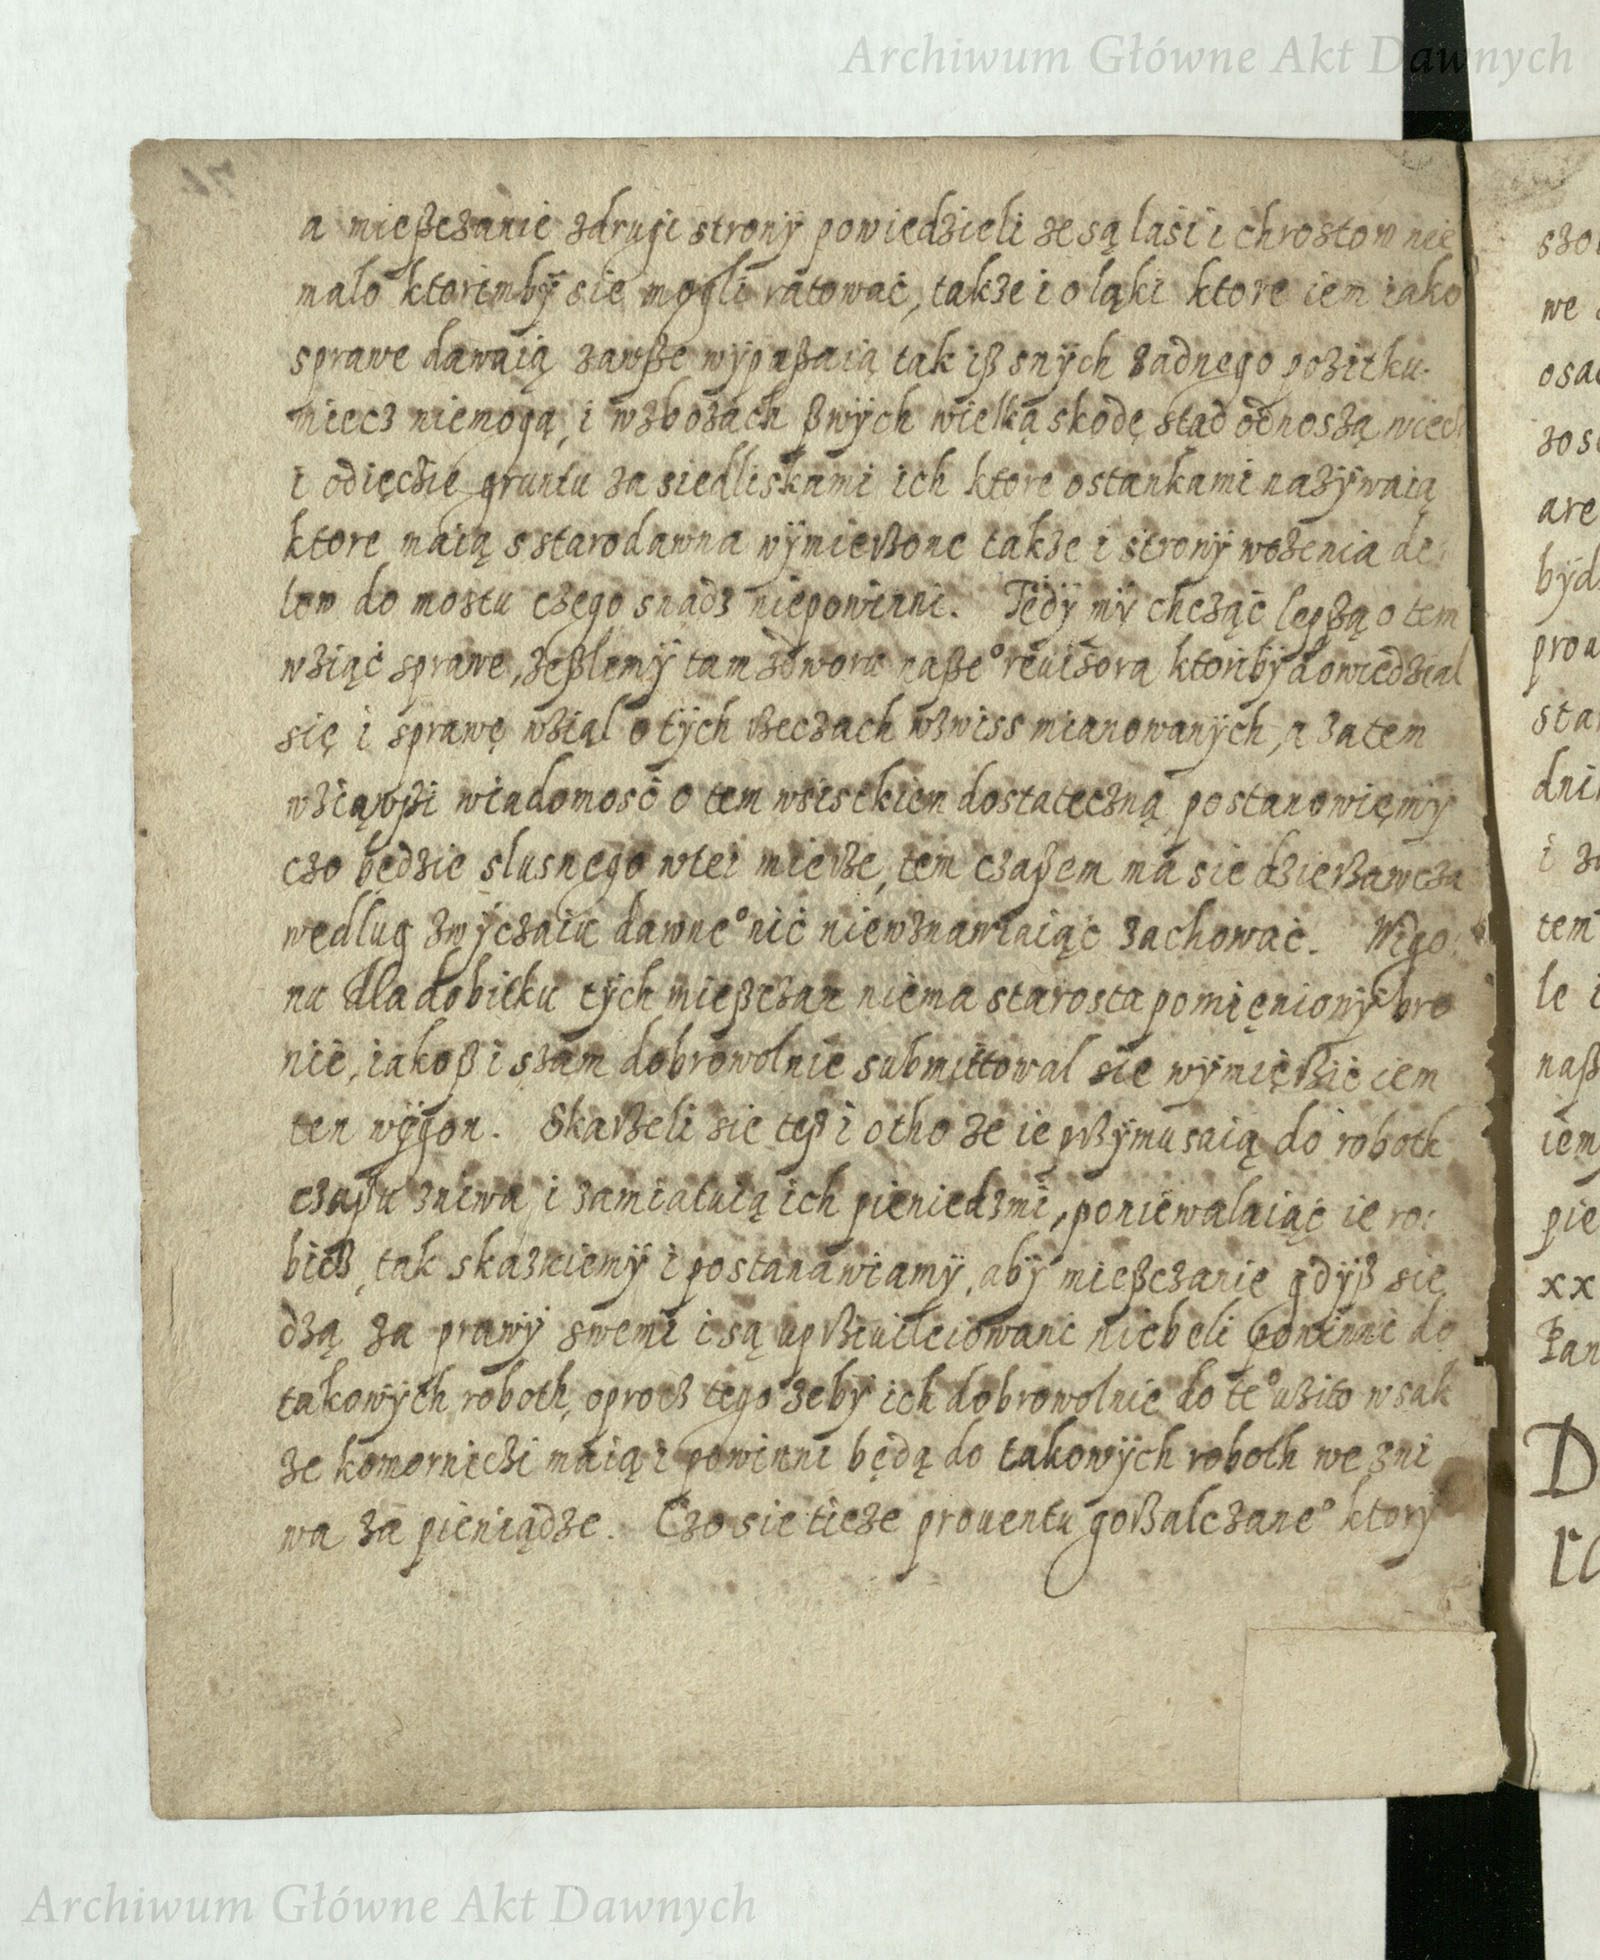 Archiwum Główne Akt Dawnych
a mießczanie zdrugi stronÿ powiedzieli ze są lasi i chrostow nie
malo ktorimbÿ sie mogli ratować, takze i o ląki ktore iem iako
sprawe dawaią zawße wÿpaßaią tak iß snÿch zadnego pozitku
miecz niemogą, i wzbozach ßwÿch wielką skodę stad odnoszą
i odięczie gruntu za siedliskami ich ktore ostankami nazÿwaią
ktore maią s starodawna wÿmierzone takze i stronÿ wozenia de
low do mostu czego snadz niepowinni. Tedÿ mÿ chcząć lepßą o tem
wziąć sprawe, zeßlemÿ tam zdworu naße° reuizora ktoribÿ dowiedzial
się i sprawę wzial o tÿch rzeczach wzwiss mianowanÿch, a zatem
wziąwßi wiadomosć o tem wsistkiem dostateczną postanowięmÿ
czo będzie slusnego wtei mierze, tem czaßem ma sie dzierzawcza
wedlug zwÿczaiu dawne° nić niewznawiaiąć zachować. Wigo
nu dla dobitku tÿch mießczan niema starosta pomięnionÿ bro
nić, iakoß i szam dobrowolnie submittowal sie wÿmięrzić iem
ten wÿgon. Skarzeli sie teß i otho ze ie przÿmusaią do roboth
czaßu zniwa i zamiatuią ich pieniedzmi, poniewalaiąć ie ro:
bicz, tak skazuiemÿ i postanawiamÿ, abÿ mießczanie gdÿß sie
dzą za prawÿ swemi i są uprziuileiowani niebeli powinni do
takowÿch roboth, oprocz tego zebÿ ich dobrowolnie do te° uzito wsak
ze komorniczi maią i powinni będą do takowÿch roboth we zni
wa za pieniądze. Czo sie ticze prouentu gorzalczane° ktorÿ
szo
we
osa
zos
are
bÿd
prou
star
dni
i
tem
le i
naß
iem
pie
xx
Pan
D
Archiwum Główne Akt Dawnych